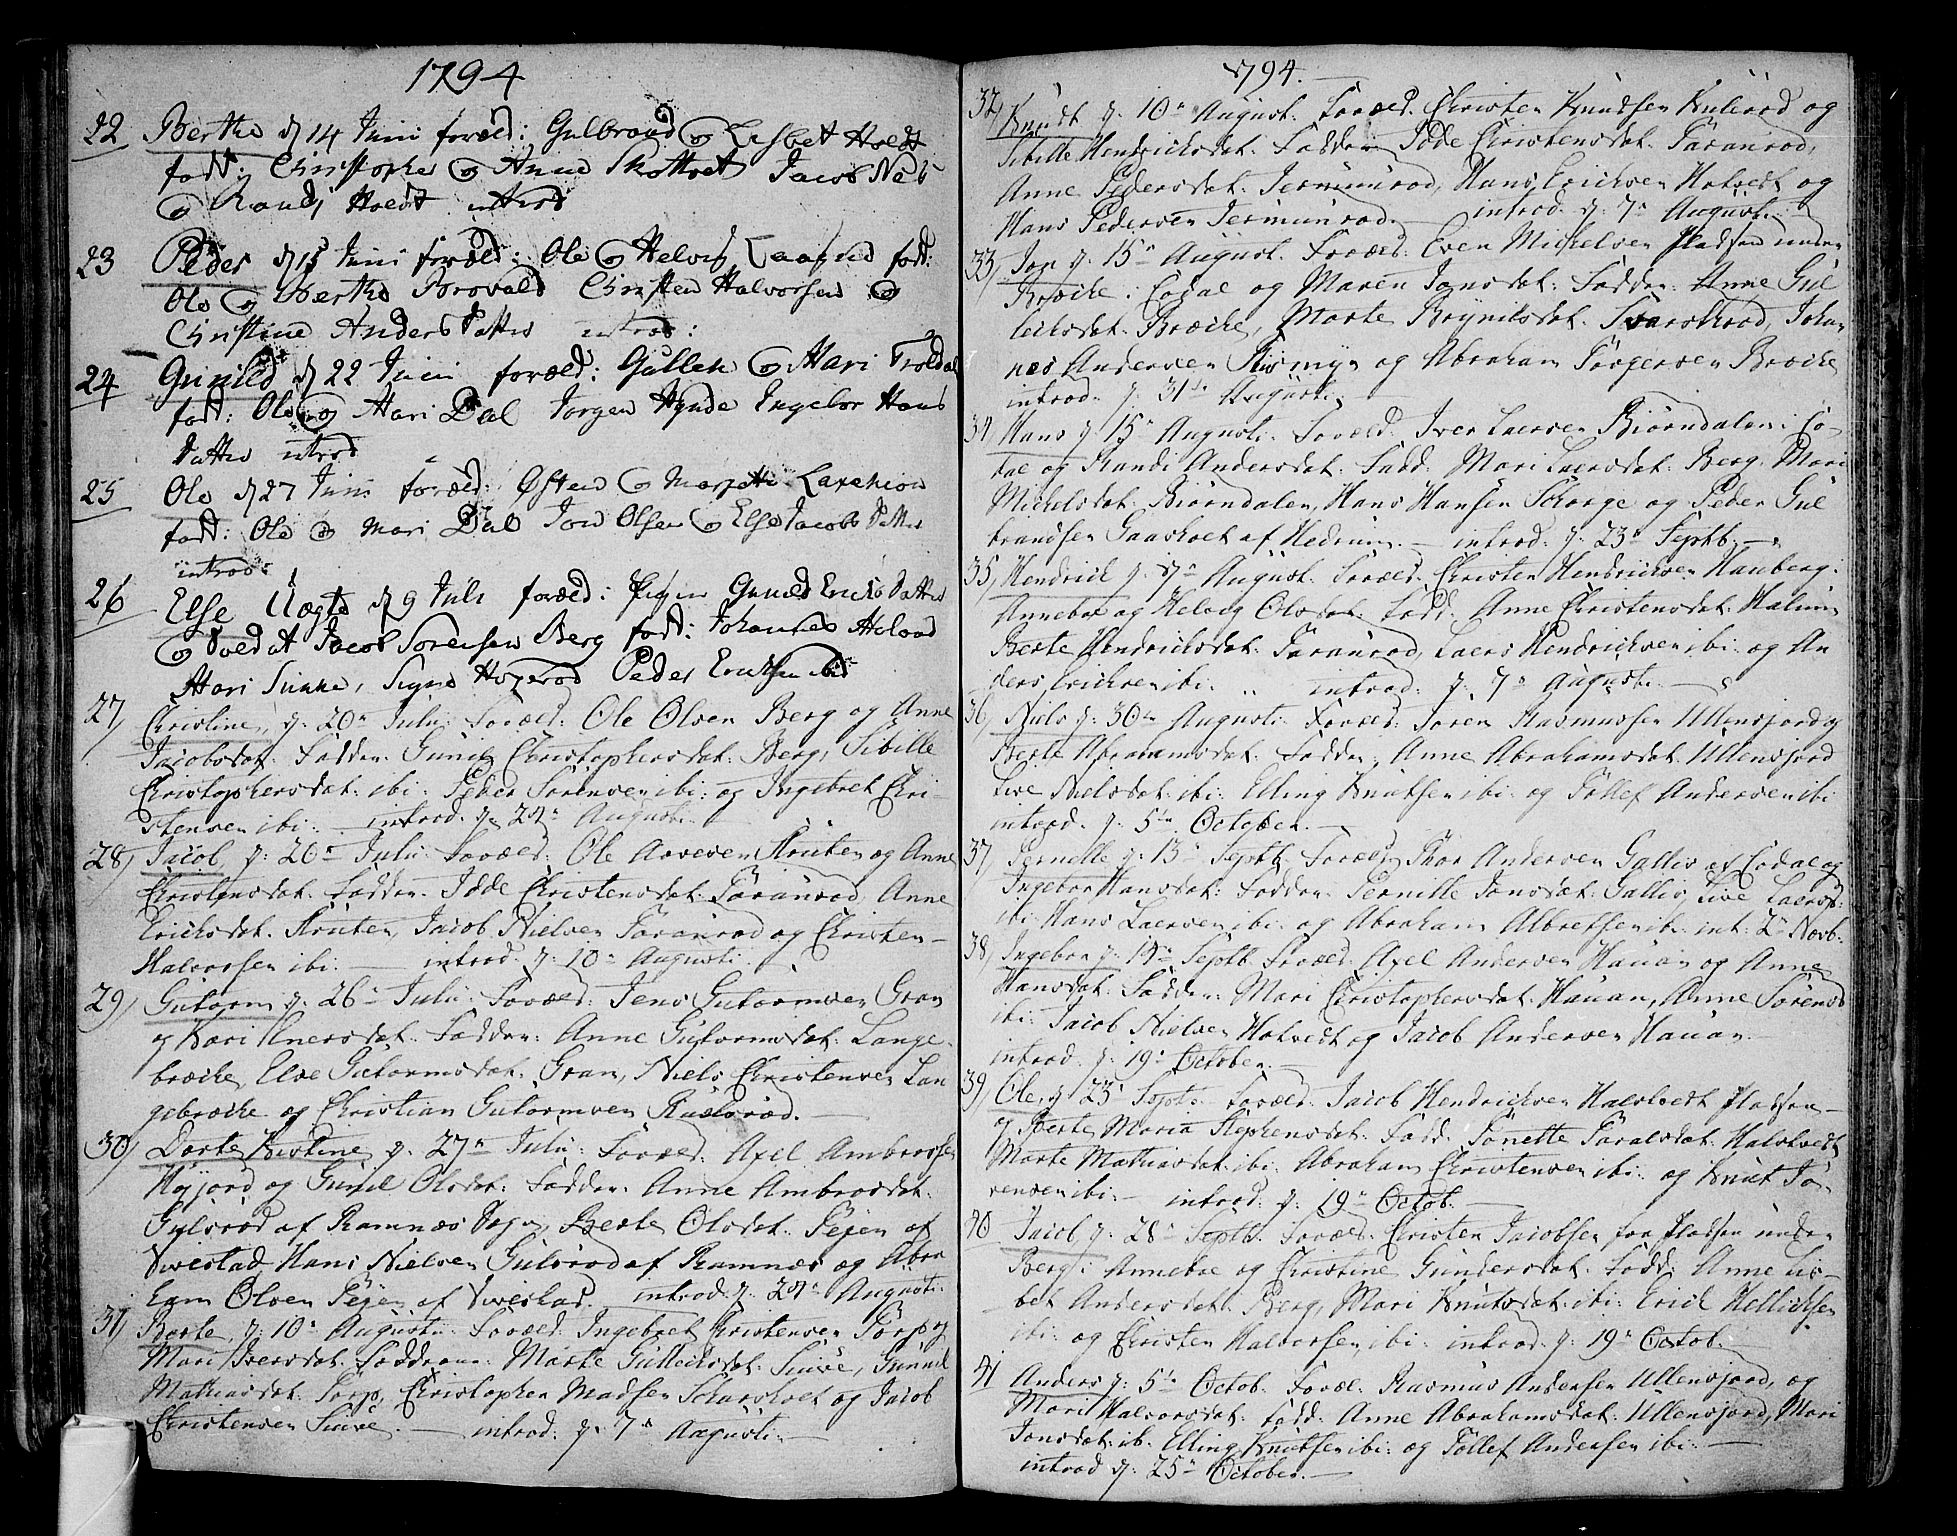 1794
22 Berthe d 14 Juni foræld: Gulbrand og Lisbet Holdt
fadd: Christopher og Anne Skottvet Jacob Neb
og Randj Holdt introd
23 Peder d 15 Juni foræld: Ole og Helvig fadd:
Ole og Berthe Torovald Christen Halvorsen og
Christine Anders Datter introd:
24 Gunild d 22 Juni foræld: Gullek og Mari Troldal
fadd: Ole og Mari Dal Jorgen Hynde Ingebor Hans
Datter introd
25 Ole d 27 Juni foræld: Østen og Margethe
fadd: Ole og Mari Dal Jon Olsen og Else Jacobs Datter
introd:
26 Else Uægte d 9 Juli foræld: Pigen Gunild Erichs Datter
og Soldat Jacob Sorensen Berg fadd: Johannes
Mari Sukke, Signe Peder Erichsen ibid
27) Christine, d. 20de Julii. Foræld: Ole Olsen Berg og Anne
Jacobsdat. Faddr. Gunil Christophersdat. Berg, Sibille
Christophersdat. ibi. Peder Sörensen ibi. og Ingebret Chri-
stensen ibi. introd. d. 24de Augusti.
28) Jacob, d. 20de Julii. Foræld: Ole Arvesen Kruten og Anne
Christensdat. Faddr. Idde Christensdat. Faranrød, Anne
Ericksdat. Kruten, Jacob Nielsen Faranrød og Christen
Halvorsen ibi. introd. d. 10de Augusti.
29) Gutorm d. 26de Julii. Foræld: Jens Gutormsen Gran
og Kari Enersdat. Faddr: Anne Gutormsdat. Lange-
bræche, Else Gutormsdat. Gran, Niels Christensen Lan
gebræche og Christian Gutormsen
30) Dorte Kirstine d. 27de Julii. Foræld. Axel Ambrossen
Höyjord og Gunil Olsdat. Faddr: Anne Ambrosdat.
Gulsrød af Ramnæs Sogn, Berte Olsdat. Fejen af
Sivestad, Hans Nielsen Gulsrød af Ramnæs og Abra
ham Olsen Fejen af Sivestad. introd. d. 24de Augusti.
31) Berte, d. 10de Augusti. Foræld. Ingebret Christensen Torp og
Mari Iversdat. Faddrene: Marte Gullichsdat. Suve, Gunnil
Mathiasdat. Torp, Christopher Madsen og Jacob
Christensen Suve. introd. d. 7de Augusti.
1794.
32) Knudt d. 10de August. Foræld. Christen Knudsen og
Sibille Hendricksdat. Faddr. Idde Christensdat. Faranrød,
Anne Pedersdat. Jermunrød, Hans Ericksen Hotvedt og
Hans Pedersen Jermunrød. introd. d. 7de August.
33) Jon d. 15de August. Foræld. Even Mickelsen Pladsen under
Bræche i Codal og Maren Jonsdat. Faddr. Anne Gul
leiksdat. Bræche, Marte Brynilsdat. Johan
nes Andersen og Abraham Torgersen Bræche
introd. d. 31te Augusti.
34 Hans d. 15de Augusti. Foræld. Iver Larsen Biörndalen i Co-
dal og Randi Andersdat. Fadd: Mari Larsdat. Berg, Mari
Mickelsdat. Biörndalen, Hans Hansen Skorge og Peder Gul
brandsen Gaasholt af Hedrum. introd. d. 23de Septb.
35) Hendrick d. 17de August. Foræld. Christen Hendricksen Hauberg.
Anneboe og Helvig Olsdat. Fadd. Anne Christensdat.
Berte Hendricksdat. Faranrød, Laers Hendricksen ibi. og An
ders Ericksen ibi. introd. d. 7de Augusti.
36) Niels d. 30te Augusti. Foræld. Soren Rasmussen Ullensjord og
Berte Abrahamsdat. Faddr. Anne Abrahamsdat. Ullensjord
Live Nielsdat. ibi. Elling Knutsen ibi. og Tollef Andersen ibi
introd. d. 5te October.
37) Pernelle d. 13de Septb. Foræld. Thor Andersen Gallis af Codal og
Ingebor Hansdat: Faddr. Pernille Jonsdat. Gallis, Live Laersd.
ibi. Hans Laersen ibi. og Abraham ibi. int. 2de Novb.
38) Ingebor d. 19de Septb. Foræld. Axel Andersen Hauan og Anne
Hansdat. Faddr: Mari Christophersdat. Hauan, Anne Sörensd
ibi. Jacob Nielsen Hotvedt og Jacob Andersen Hauan.
introd. d. 19de October.
39) Ole, d. 23de Septb. Foræld. Jacob Hendricksen Halsvedt Pladsen
og Berte Maria Stephensdat. Fadd. Tonette Halsvedt
Marte Mathiasdat. ibi. Abraham Christensen ibi. og Knut Tö-
rensen ibi. introd. d. 19de Octob.
40 Jacob d. 28de Septb. Foræld. Christen Jacobsen fra Pladsen under
Berg i Anneboe og Christine Gundersdat. Fadd. Anne Lis-
bet Andersdat. Berg, Mari Knutsdat. ibi. Erick Hellichsen
ibi. og Christen Halvorsen ibi. introd. d. 19de Octob.
41 Anders d. 5te Octob. Foræl. Rasmus Andersen Ullensjord, og
Mari Halvorsdat. Fadd. Anne Abrahamsdat. Ullensjord, Mari
Jonsdat. ib. Elling Knutsen ibi. og Tollef Andersen ibi.
introd d. 25de October.